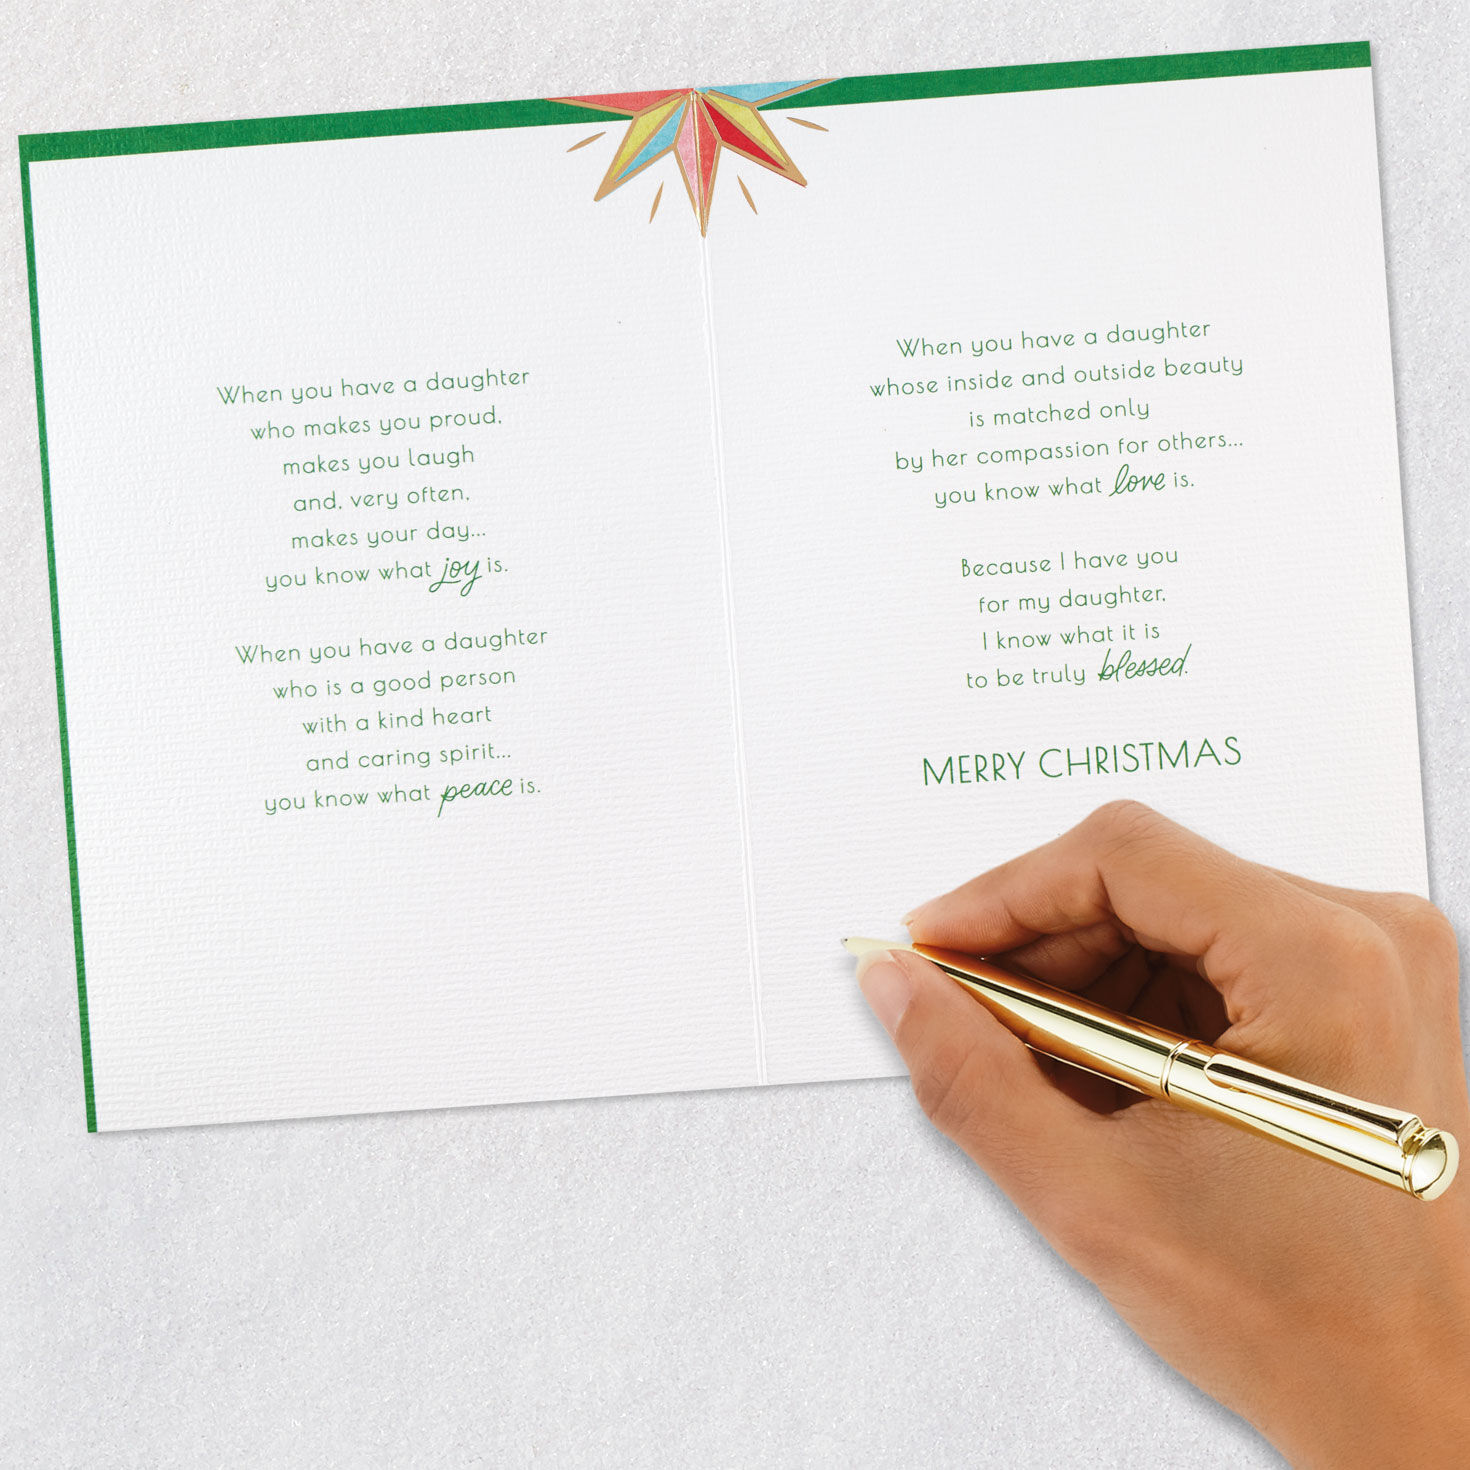 When you have a daughter
who makes you proud,
makes you laugh
and, very often,
makes your day...
you know what joy is.
When you have a daughter
who is a good person
with a kind heart
and caring spirit...
you know what peace is.
When you have a daughter
whose inside and outside beauty
is matched only
by her compassion for others...
you know what love is.
Because I have you
for my daughter,
I know what it is
to be truly blessed.
MERRY CHRISTMAS